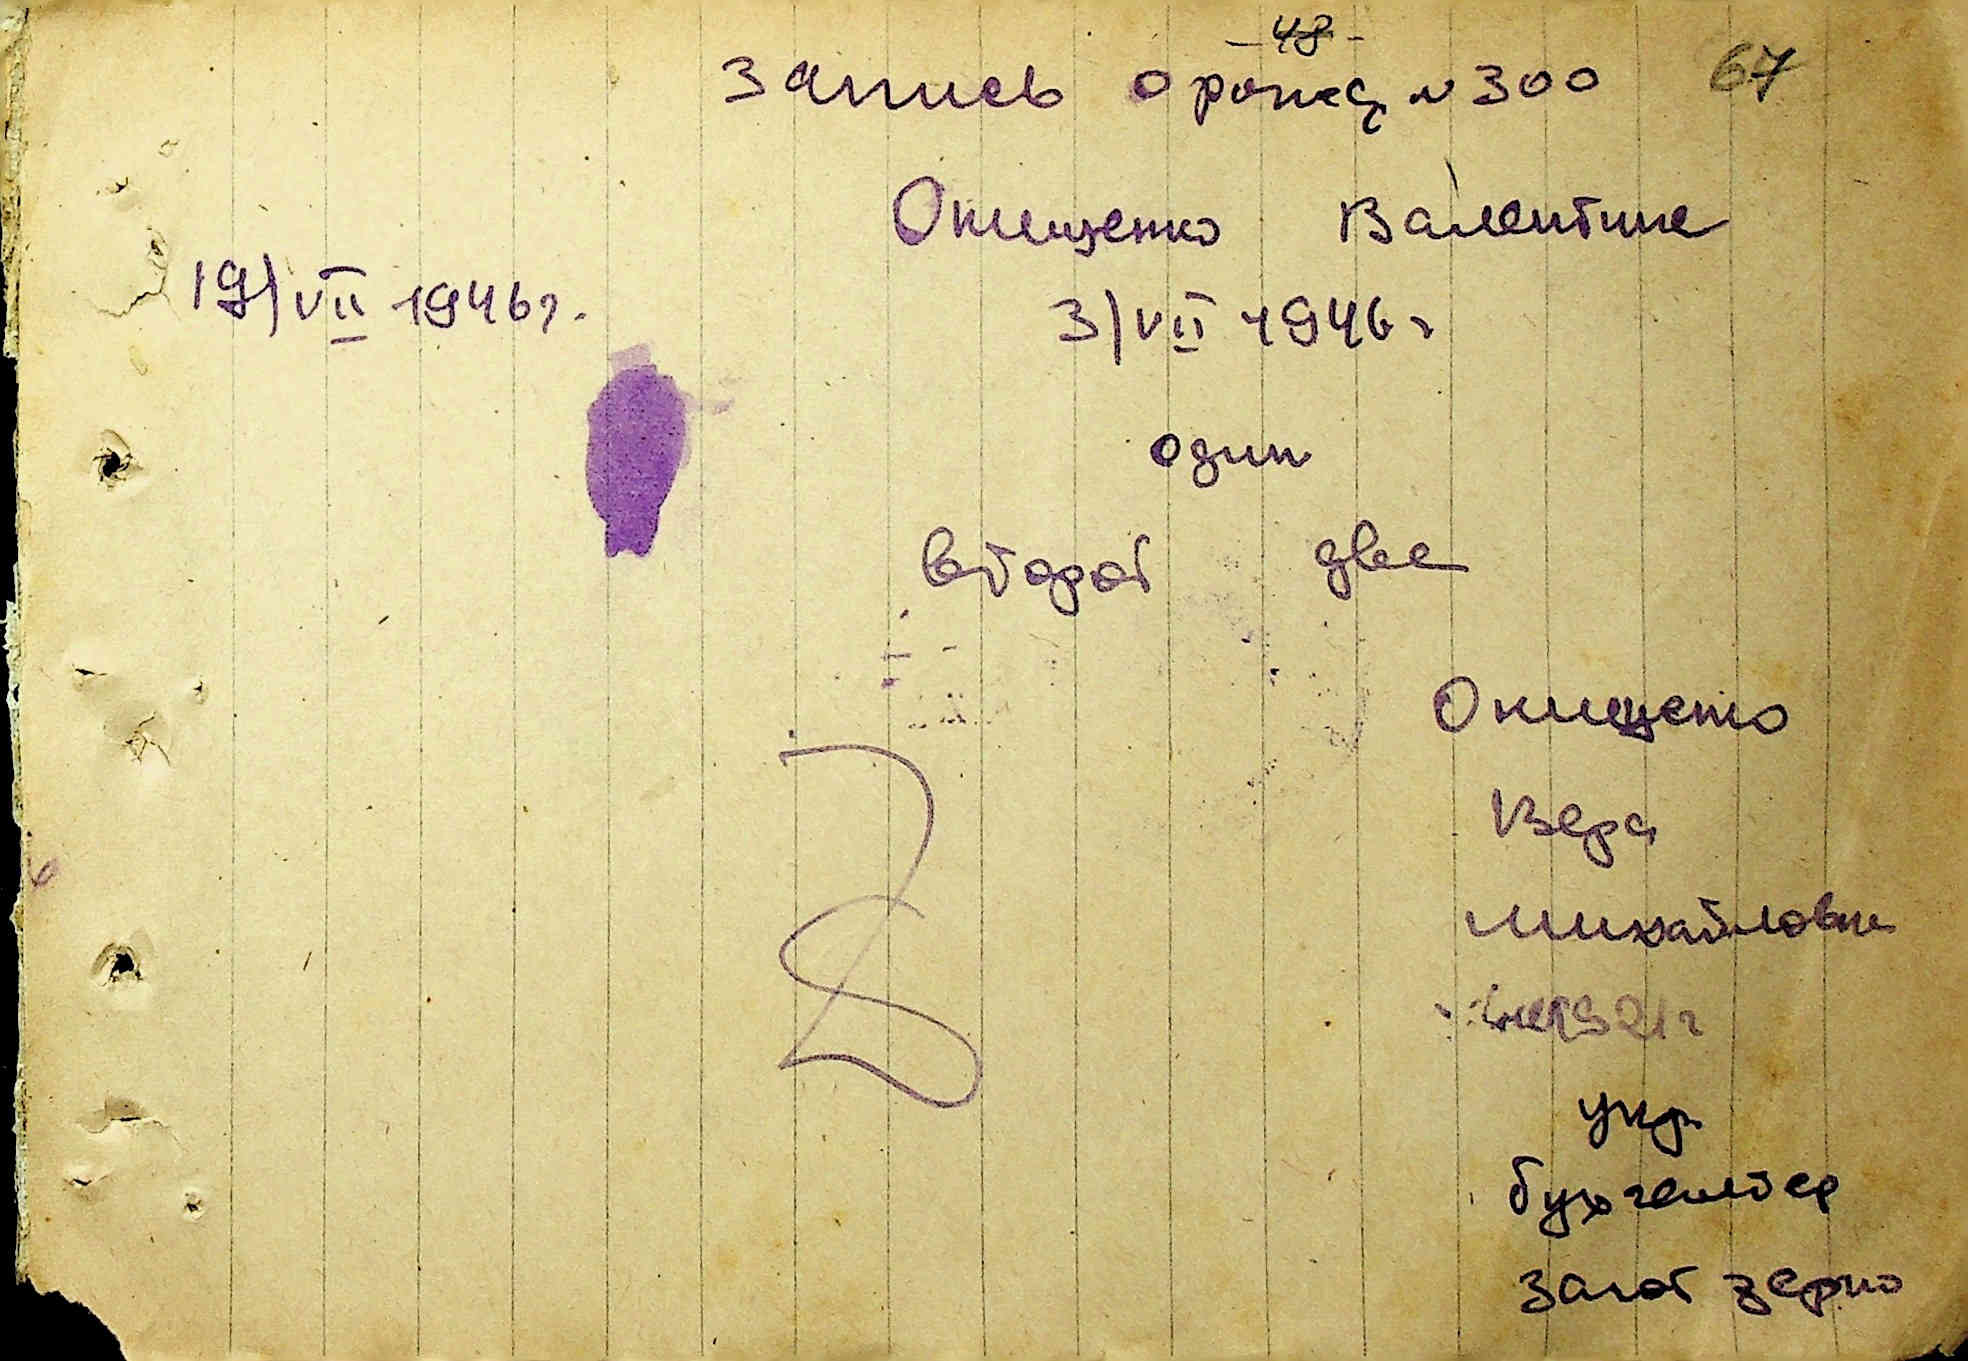 -48-
Запись о рожд N 300 67
Онищенко Валентина
19/VII 1946г. 3/VII 1946г
один
второй две
Онищенко
Вера
Михайловна
1921г
укр.
бухгалтер
Загот зерно